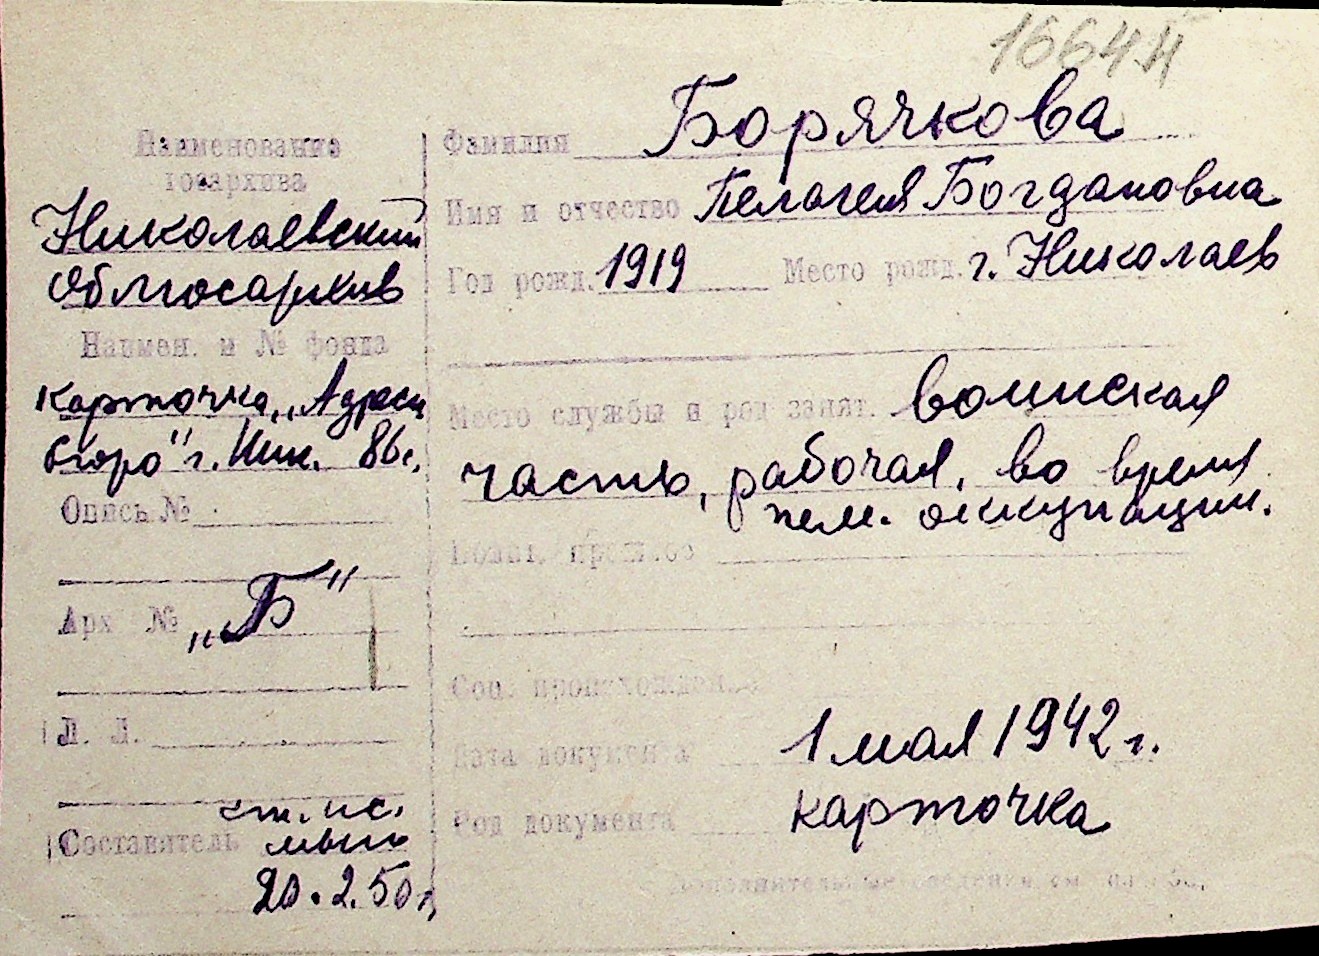 16644
Наименование
госархива
Николаевский
Облгосархив
Наимен. и № фонда
карточка „Адресн
бюро" г. Ник. 86г.
Опись №
Арх №
„Б"
Л. Л.
Составитель
20.2.50г.
Фамилия Борячкова
Имя и отчество Пелагея Богдановна
Год рожд. 1919 Место рожд. г. Николаев
Место службы и род занят. воинская
часть, рабочая, во время
нем. оккупации.
Соц. происхожден.
Дата документа 1 мая 1942 г.
Род документа карточка
Дополнительные сведения см. на об.